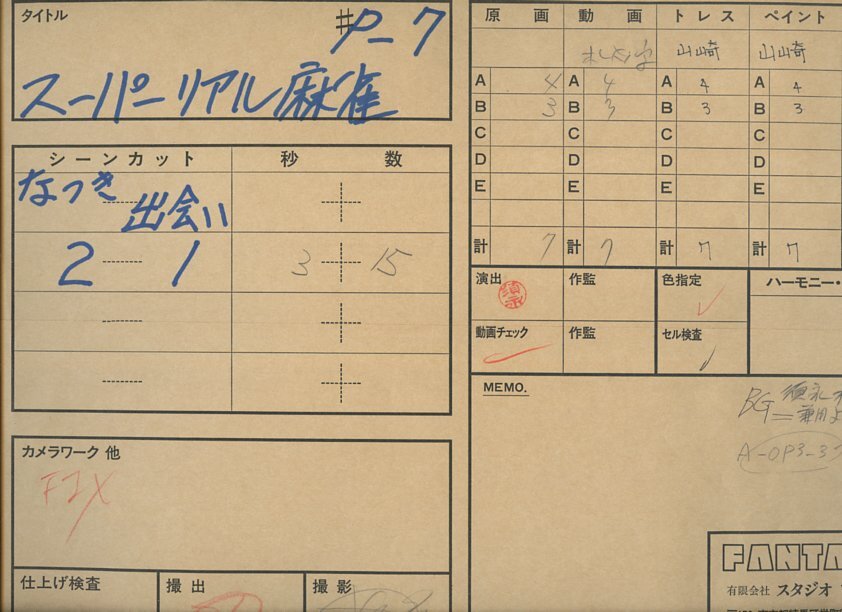 タイトル
#P-7
スーパーリアル麻雀
シーンカット 秒数
なつき 出会い
2 1 3 15
カメラワーク 他
FIX
仕上げ検査 撮出 撮影
原画 動画 トレス ペイント
山崎 山崎
A 4 A 4 A 4 A 4
B 3 B 3 B 3 B 3
C C C C
D D D D
E E E E
計 7 計 7 計 7 計 7
演出 作監 色指定 ハーモニー・
須永
動画チェック 作監 セル検査
MEMO.
BG 須永
兼用
A-OP3-3
FANTA
有限会社 スタジオ